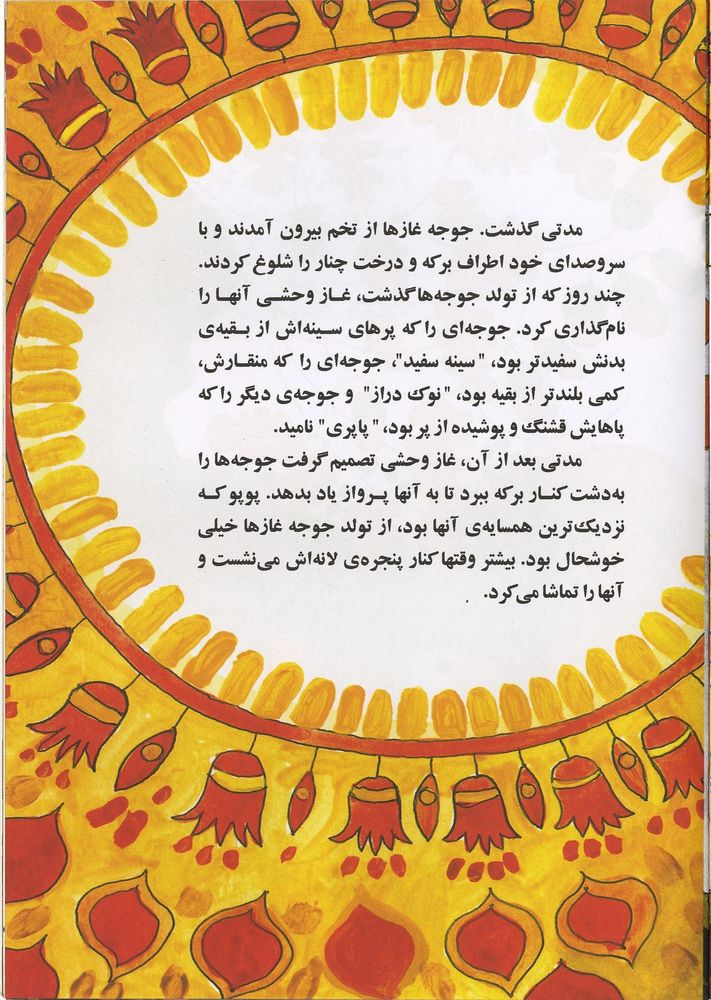 مدتی گذشت. جوجه غازها از تخم بیرون آمدند و با
سروصدای خود اطراف برکه و درخت چنار را شلوغ کردند.
چند روز که از تولد جوجه‌ها گذشت، غـاز وحشـی آنهـا را
نام‌گذاری کرد. جوجه‌ای را که پرهای سـینه‌اش از بـقیه‌ی
بدنش سفیدتر بود، "سینه سفید"، جوجه‌ای را که منقـارش،
کمی بلندتر از بقیه بود، "نوک دراز" و جوجه‌ی دیگر را که
پاهایش قشنگ و پوشیده از پر بود، "پاپری" نامید.
مدتی بعد از آن، غاز وحشی تصمیم گرفت جوجه‌ها را
به‌دشت کنـار برکه ببرد تا به آنها پـرواز یاد بدهد. پوپو کـه
نزدیک‌ترین همسایه‌ی آنها بود، از تولد جوجه غازها خیلی
خوشحال بود. بیشتر وقتها کنار پنجره‌ی لانه‌اش می‌نشست و
آنها را تماشا می‌کرد.